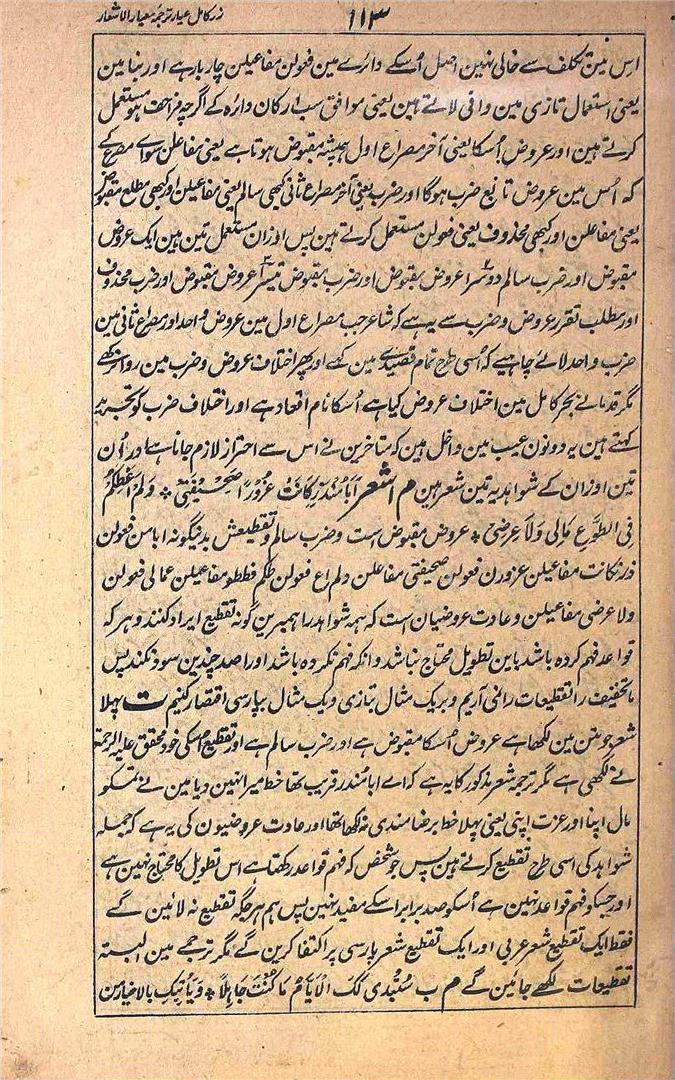 زر کامل عیار ترجمہ معیار الاشعار
۱۱۳
اس مین تکلف سے خالی نہین اصل اُسکے دائرے مین فعولن مفاعیلن چار بار ہے اور بنا مین
یعنی استعمال تازی مین وافی لاتے ہین یعنی موافق سب ارکان دائرہ کے اگرچہ مزاحف ہو مستعمل
کرتے ہین اور عروض اُسکا یعنی آخر مصراع اول ہمیشہ مقبوض ہوتا ہے یعنی مفاعلن سواے مصرع کے
کہ اُس مین عروض تابع ضرب ہوگا اور ضرب یعنی آخر مصراع ثانی کبھی سالم یعنی مفاعیلن اور کبھی مطلع مقبوض
یعنی مفاعلن اور کبھی محذوف یعنی فعولن مستعمل کرتے ہین پس اوزان مستعمل تین ہین ایک عروض
مقبوض اور ضرب سالم دوسرا عروض مقبوض اور ضرب مقبوض تیسرا عروض مقبوض اور ضرب محذوف
اور مطلب تقرر عروض و ضرب سے یہ ہے کہ شاعر جب مصراع اول مین عروض واحد اور مصراع ثانی مین
ضرب واحد لائے چاہیے کہ اُسی طرح تمام قصیدے مین کہے اور پھر اختلاف عروض و ضرب مین روا نرکھے
مگر قدمانے بحر کامل مین اختلاف عروض کیا ہے اُسکا نام اقعاد ہے اور اختلاف ضرب کو تحرید
کہتے ہین یہ دونون عیب مین داخل ہین کہ متاخرین نے اس سے احتراز لازم جانا ہے اور اُن
تین اوزان کے شواہد یہ تین شعر ہین م اشعر اَبَا مُنْذِرٍ کَانَتْ غُرُوْرًا صَحِیْفَتِیْ ٭ وَلَمْ اُعْطِکُمْ
فِی الطَّوْعِ مَالِی وَلَا عِرْضِیْ ٭ عروض مقبوض است و ضرب سالم و تقطیعش بدینگونہ ابامن فعولن
ذرنکانت مفاعیلن غرورن فعولن صحیفتی مفاعلن ولم اع فعولن طکم فططو مفاعیلن عمالی فعولن
ولا عرضی مفاعیلن و عادت عروضیان است کہ ہمہ شواہد را ہمبرین گونہ تقطیع ایراد کنند و ہر کہ
قواعد فہم کردہ باشد باین تطویل محتاج نباشد و آنکہ فہم نکردہ باشد او را صد چندین سود نکند پس
ما تخفیف را تقطیعات رانمی آریم و بریک مثال بتازی ویک مثال بپارسی اقتصار کنیم ت پہلا
شعر جو متن مین لکھا ہے عروض اُسکا مقبوض ہے اور ضرب سالم ہے اور تقطیع اُسکی خود محقق علیہ الرحمۃ
نے لکھی ہے مگر ترجمہ شعر مذکور کا یہ ہے کہ اے ابا منذر فریب تھا خط میرا نہین دیا مین نے تمکو
مال اپنا اور عزت اپنی یعنی پہلا خط برضامندی نہ لکھا تھا اور عادت عروضیون کی یہ ہے کہ جملہ
شواہد کی اسی طرح تقطیع کرتے ہین پس جو شخص کہ فہم قواعد رکھتا ہے اس تطویل کا محتاج نہین ہے
اور جسکو فہم قواعد نہین ہے اُسکو صد برابر اسکے مفید نہین پس ہم ہر جگہ تقطیع نہ لائین گے
فقط ایک تقطیع شعر عربی اور ایک تقطیع شعر پارسی پر اکتفا کرین گے مگر ترجمے مین البتہ
تقطیعات لکھے جائین گے م ب سَتُبْدِی لَکَ الْاَیَّامُ مَا کُنْتَ جَاہِلًا ٭ وَیَاْتِیْکَ بالاخبار من